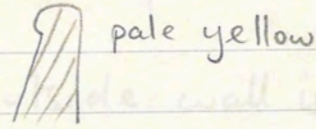 pale yellow